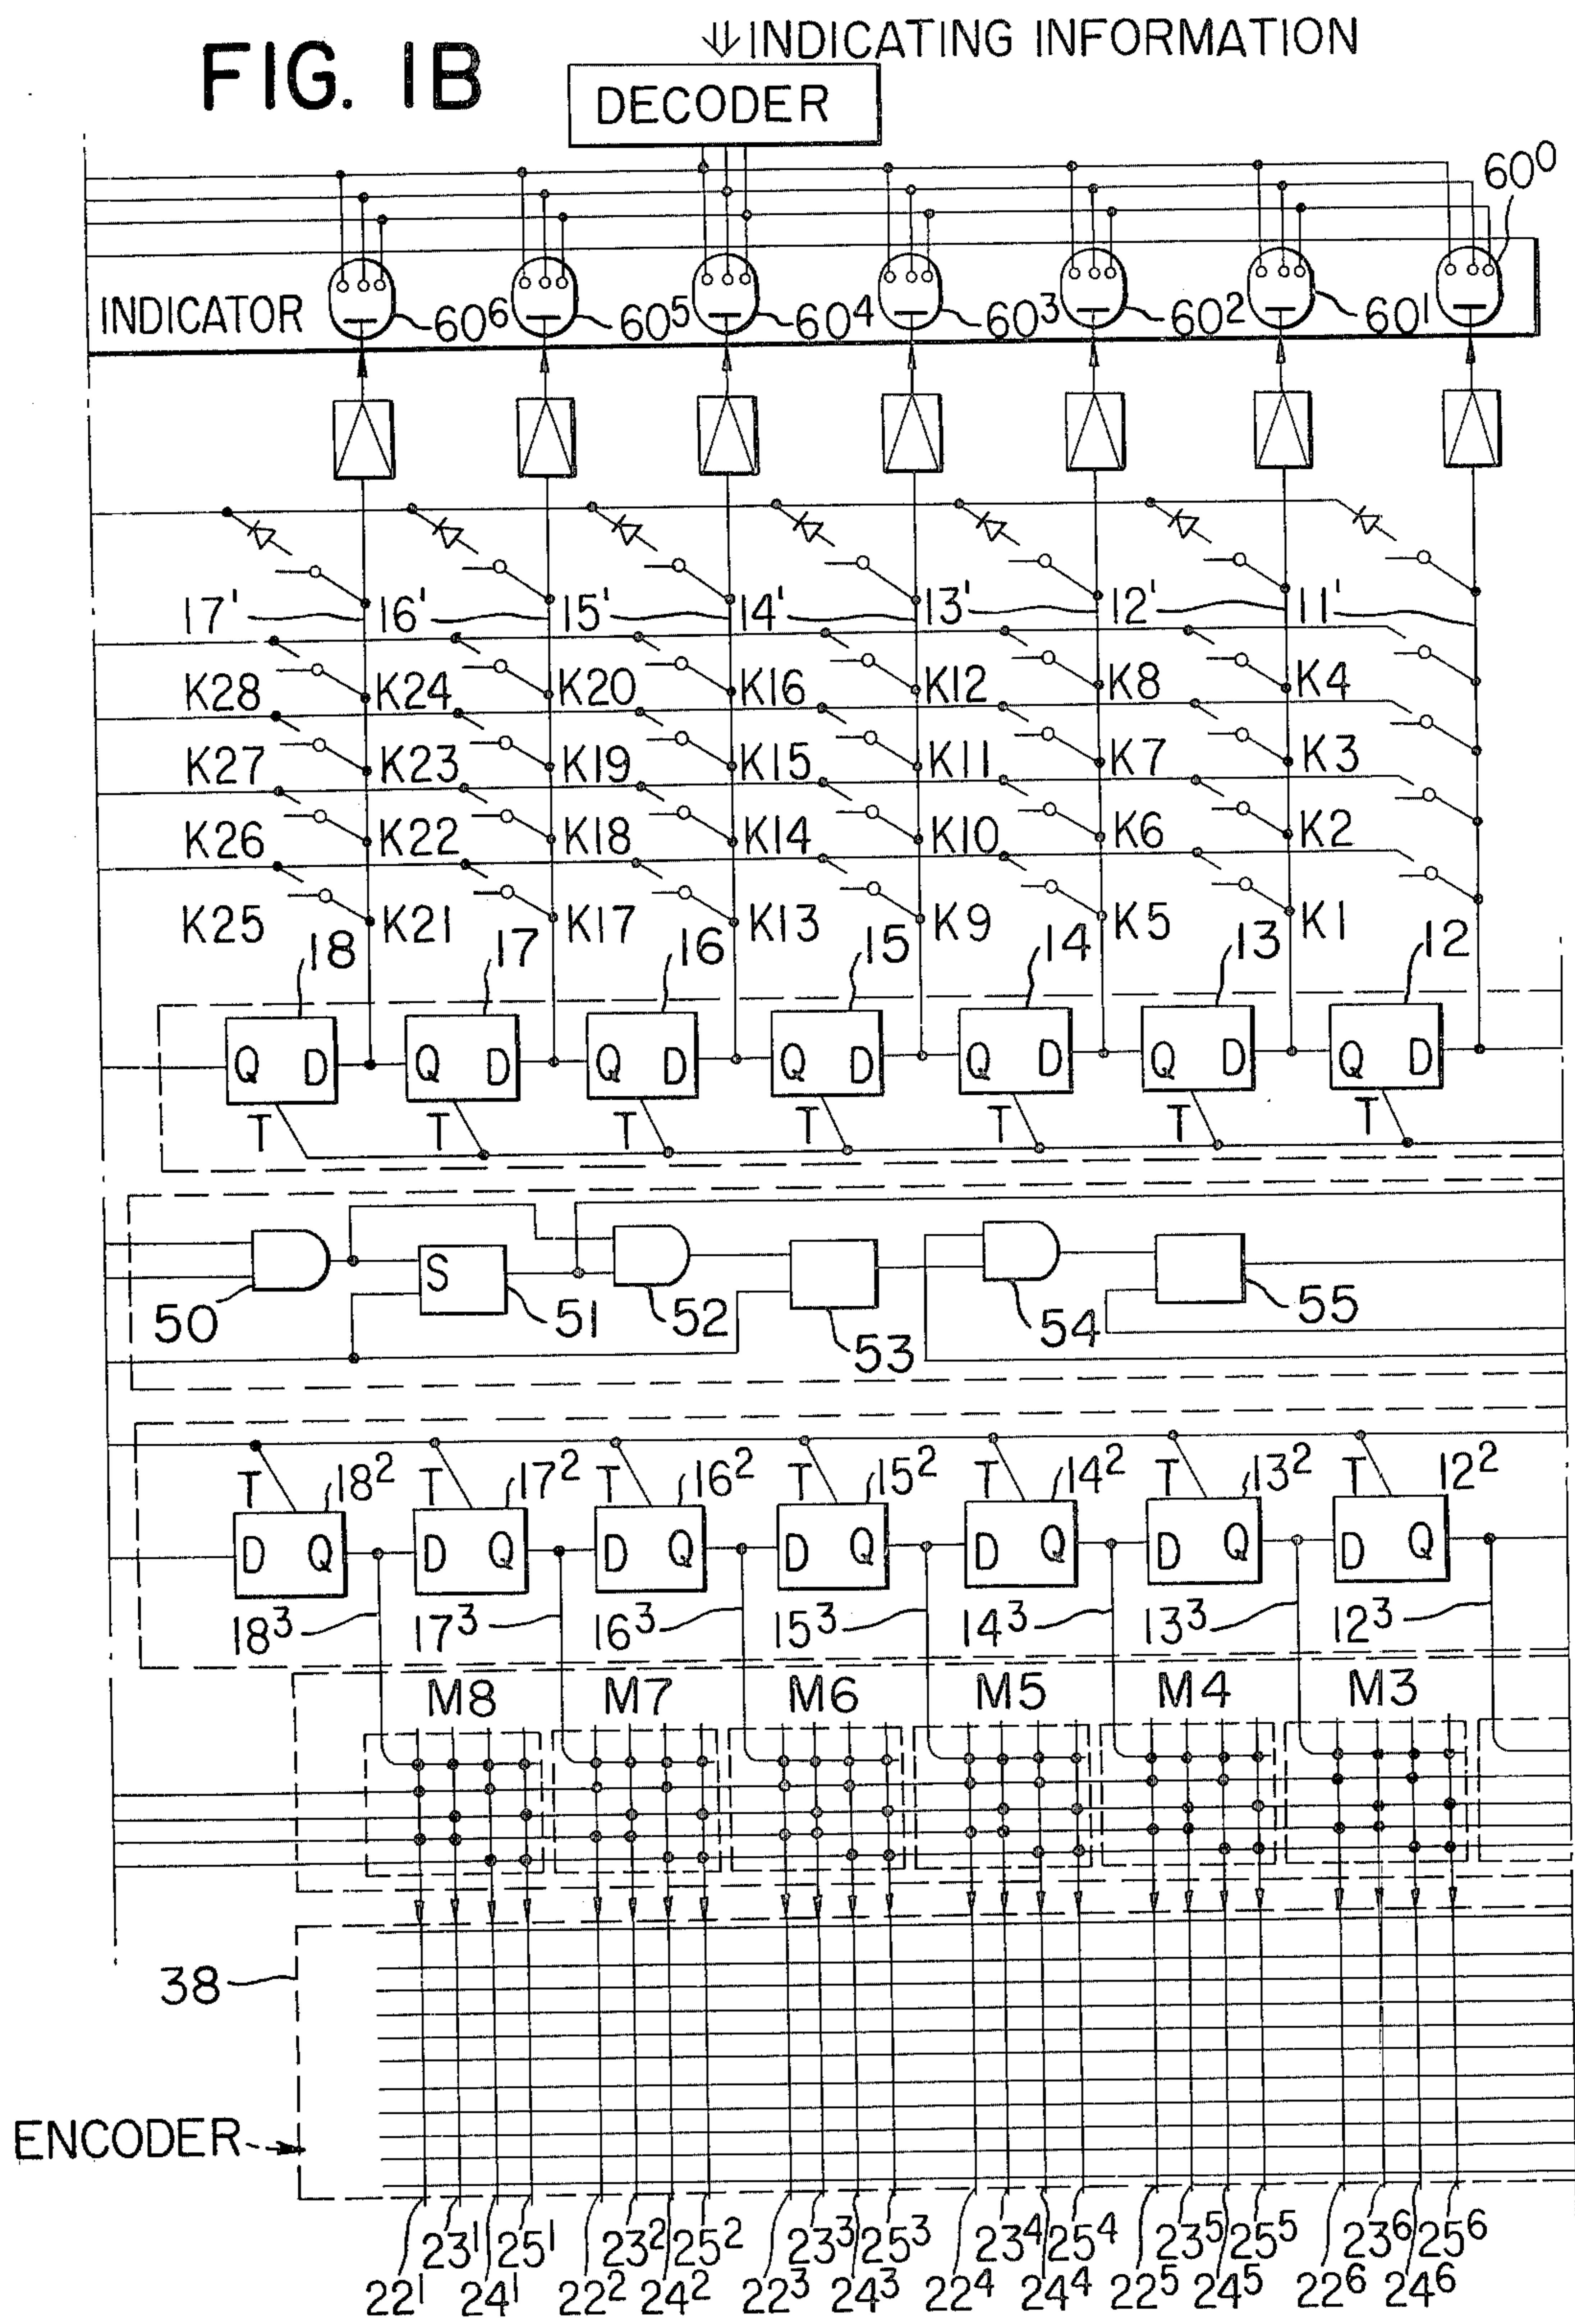 FIG. 1B
⇓ INDICATING INFORMATION
DECODER
60⁰
INDICATOR 60⁶ 60⁵ 60⁴ 60³ 60² 60¹
17' 16' 15' 14' 13' 12' 11'
K28 K24 K20 K16 K12 K8 K4
K27 K23 K19 K15 K11 K7 K3
K26 K22 K18 K14 K10 K6 K2
K25 K21 K17 K13 K9 K5 K1
18 17 16 15 14 13 12
Q D Q D Q D Q D Q D Q D Q D
T T T T T T T
S
50 51 52 53 54 55
T 18² T 17² T 16² T 15² T 14² T 13² T 12²
D Q D Q D Q D Q D Q D Q D Q
18³ 17³ 16³ 15³ 14³ 13³ 12³
M8 M7 M6 M5 M4 M3
38
ENCODER
23¹ 25¹ 23² 25² 23³ 25³ 23⁴ 25⁴ 23⁵ 25⁵ 23⁶ 25⁶
22¹ 24¹ 22² 24² 22³ 24³ 22⁴ 24⁴ 22⁵ 24⁵ 22⁶ 24⁶